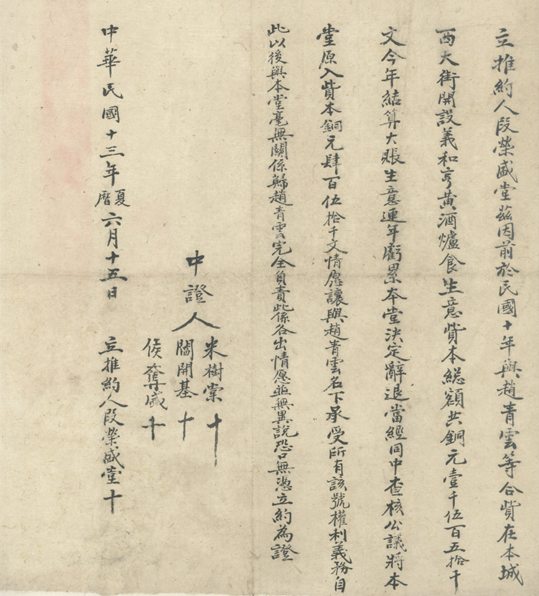 立推約人段榮盛堂茲因前於民國十年與趙青雲等合貲在本城
西大街開設義和亨黃酒爐食生意貲本總額共銅元壹千伍百五拾千
文今年結算大賬生意連年虧累本堂決定辭退當經同中查核公議將本
堂原入貲本銅元肆百伍拾千文情愿讓與趙青雲名下承受所有該號權利義務自
此以後與本堂毫無關係歸趙青雲完全負責此係各出情愿並無異說恐口無憑立約為證
中證人
米樹棠十
閻開基十
侯奪威十
中華民國十三年夏曆六月十五日 立推約人段榮盛堂十